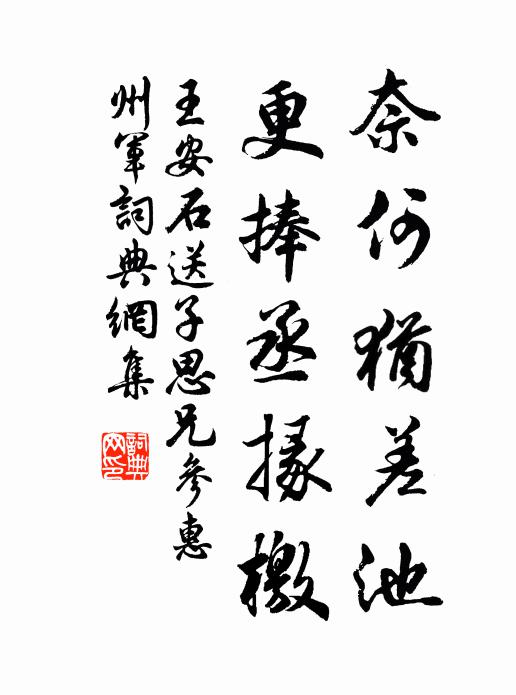 奈何猶差池
更捧丞掾檄
王安石送子思兄參惠
州軍詞典網集
詞典
网印